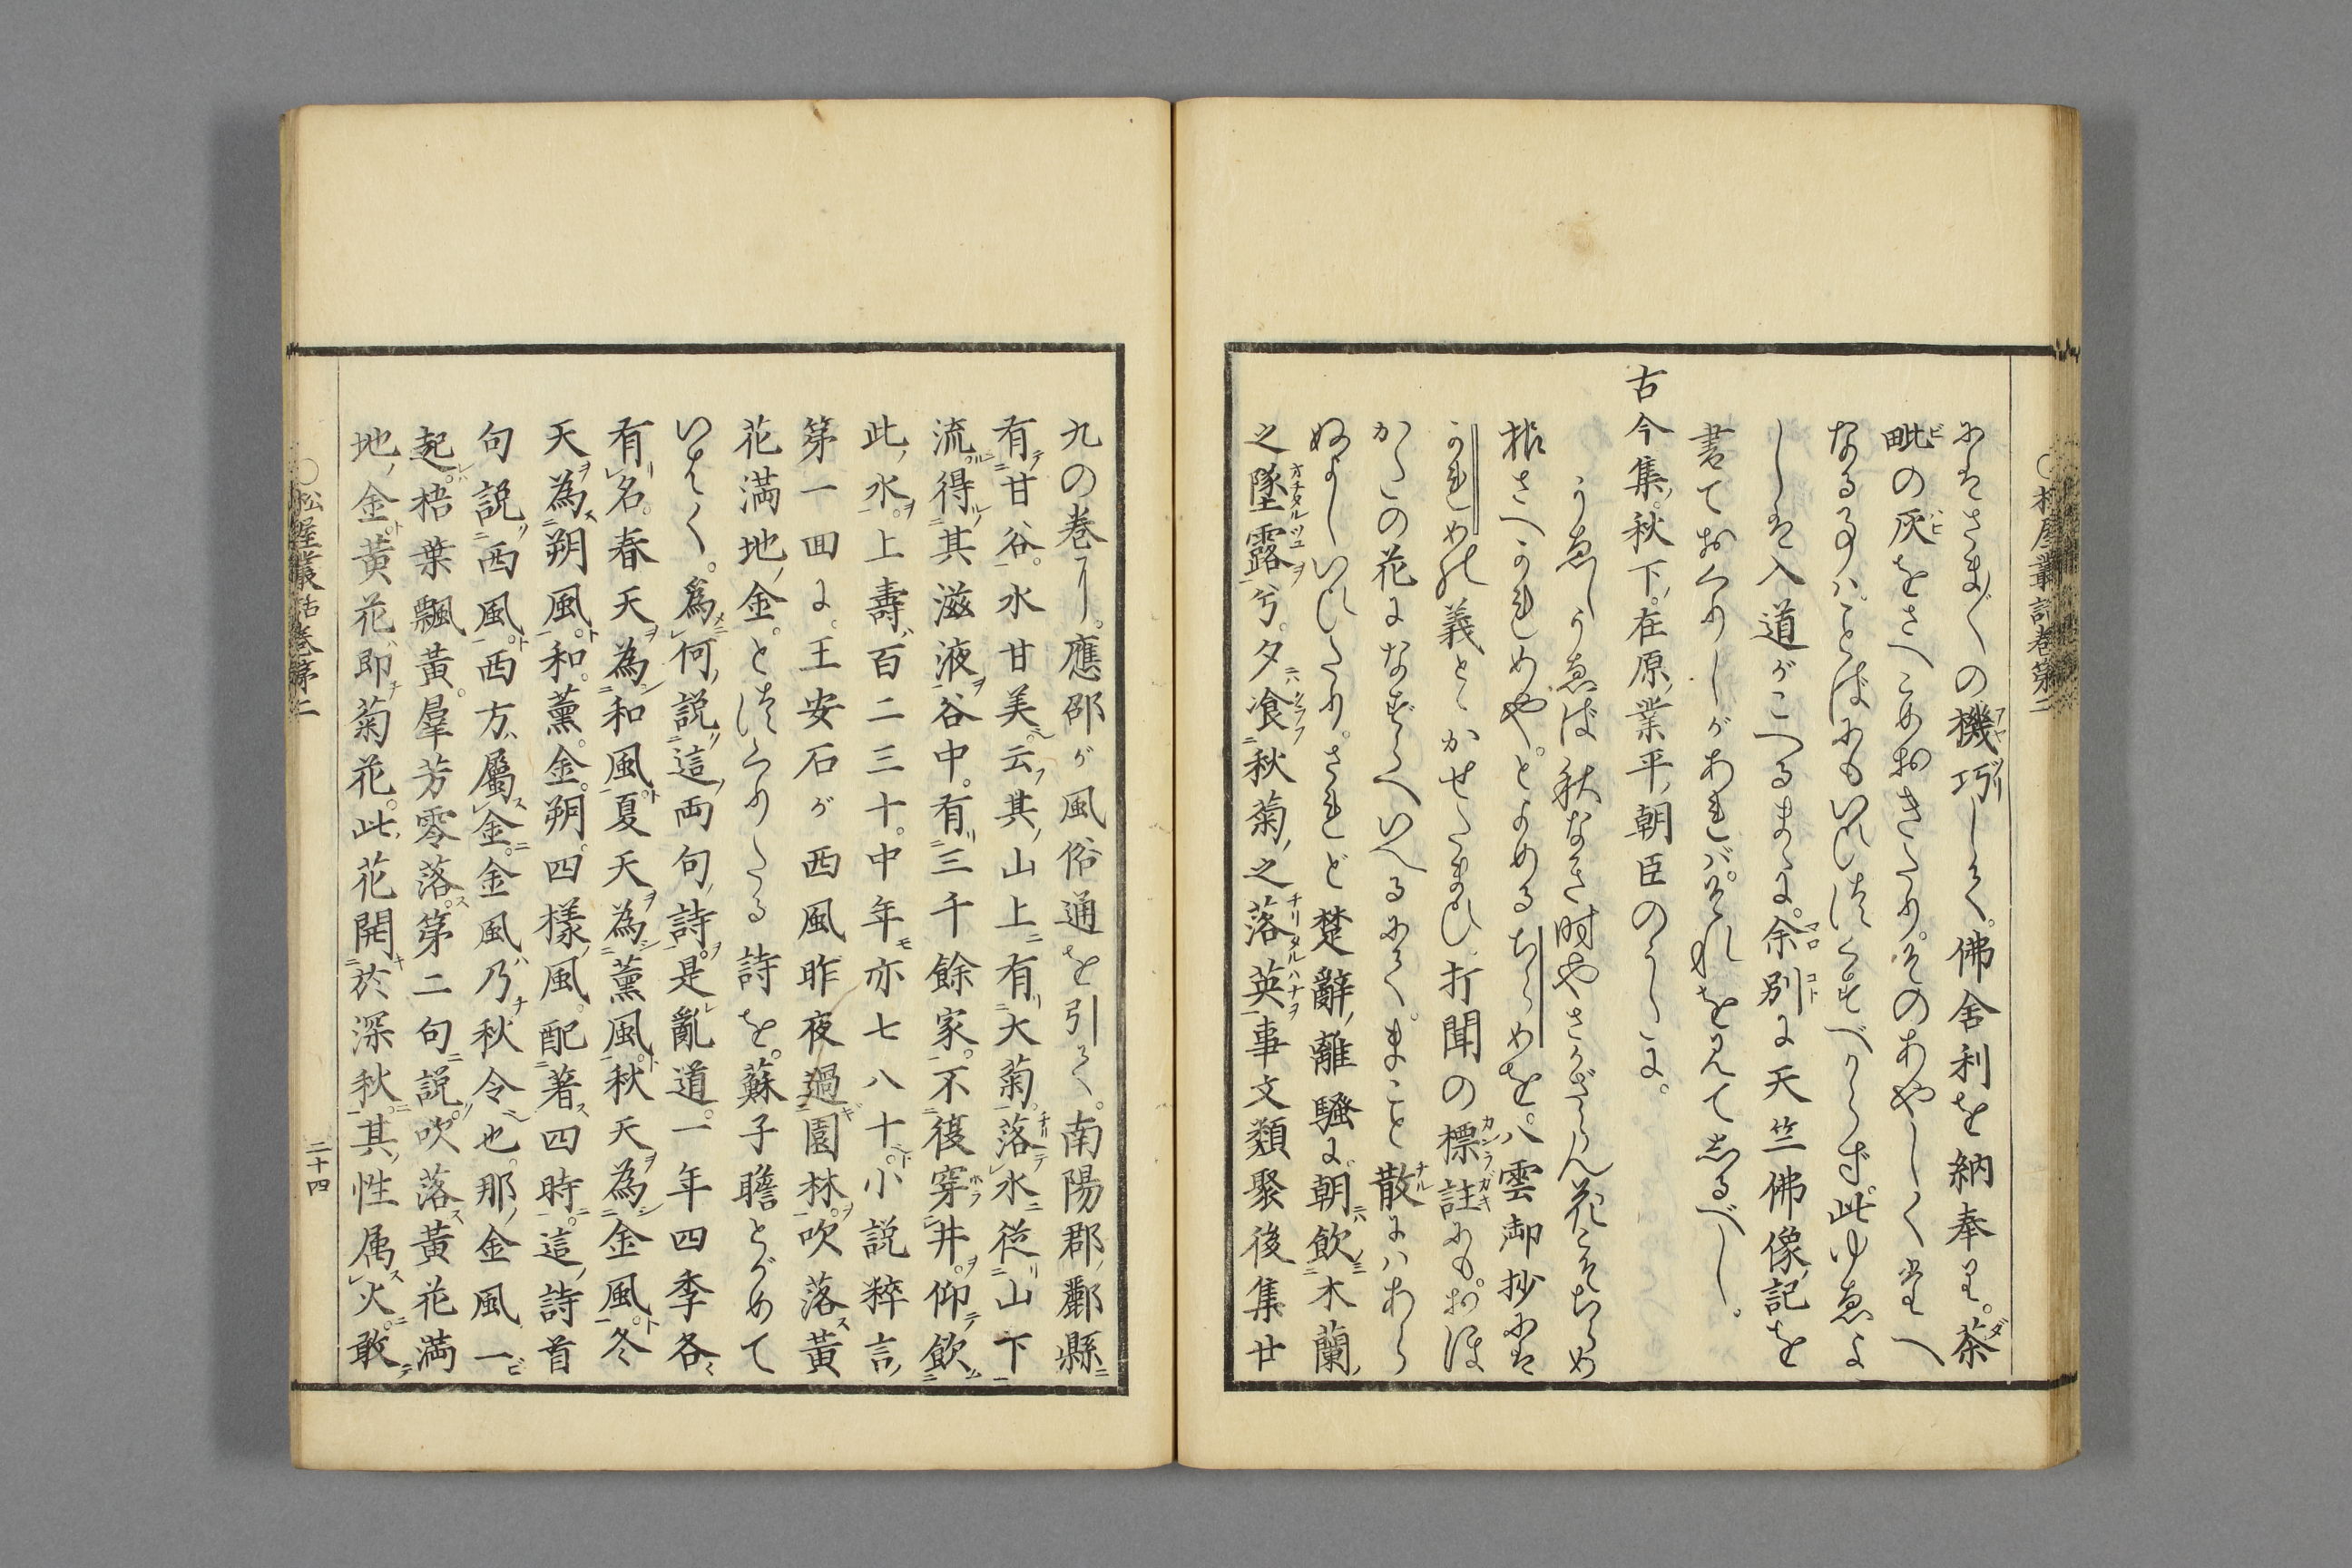 ○松屋叢話卷第二
にはさま〴〵の機巧しく。佛舍利を納奉り。荼
毗の灰をさへこめおきたり。そのあやしくたへ
なる事ハ。ことばにもいひつくすべからず。此ゆゑよ
しは入道がこへるまゝに。余別に天竺佛像記を
書ておくりしがあれバ。それを見てしるべし。
古今集。秋下。在原業平朝臣のうたに。
うゑしうゑば秋なき時やさかざらん花こそちらめ
根さへかれめや。とよめるちらめを。八雲御抄には
かれめの義とゝかせたまひ。打聞の標註にも。おほ
かたの花になずらへいへるにて。まこと散にハあら
ぬよしいひたり。されど楚辭離騷に。朝飲木蘭
之墜露兮。夕飡秋菊之落英。事文類聚後集廿
九の卷に。應邵が風俗通を引て。南陽郡酈縣
有甘谷。水甘美。云其山上有大菊。落水從山下
流得其滋液。谷中。有三千餘家。不復穿井。仰飲
此水。上壽百二三十。中年亦七八十。小説粹言
第一回に。王安石が西風昨夜過園林。吹落黃
花滿地金。とつくりたる詩を。蘇子瞻とがめて
いはく。爲何説這両句詩。是亂道。一年四季各
有名。春天為和風。夏天為薰風。秋天為金風。冬
天為朔風。和。薰。金。朔。四樣風。配著四時。這詩首
句説西風。西方屬金。金風乃秋令也。那金風一
起。梧葉飄黃。羣芳零落。第二句説。吹落黃花滿
地金。黃花即菊花。此花開於深秋。其性属火。敢
○松屋叢話卷第二
二十四